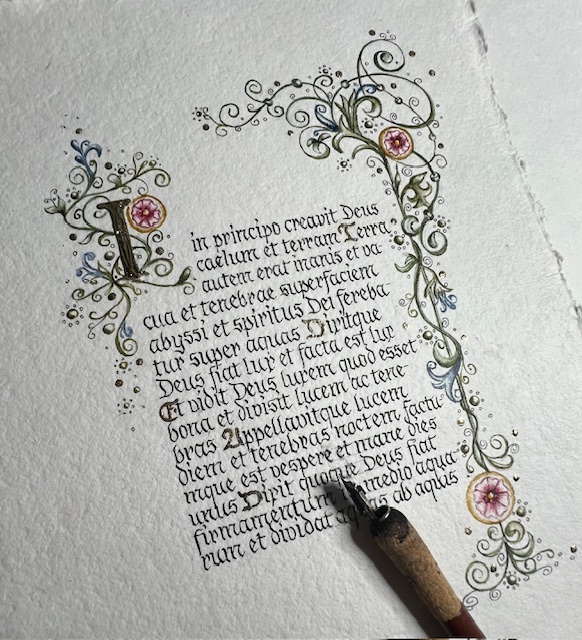 I
in principo creavit Deus
caelum et terram Terra
autem erat inanis et va
cua et tenebrae superfaciem
abyssi et spiritus Dei fereba
tur super aquas Dixitque
Deus fiat lux et facta est lux
Et vidit Deus lucem quod esset
bona et divisit lucem ac tene
bras Appellavitque lucem
diem et tenebras noctem factu
mque est vespere et mane dies
unus Dixit quoque Deus fiat
firmamentum medio aqua
rum et dividat aquas ab aquis